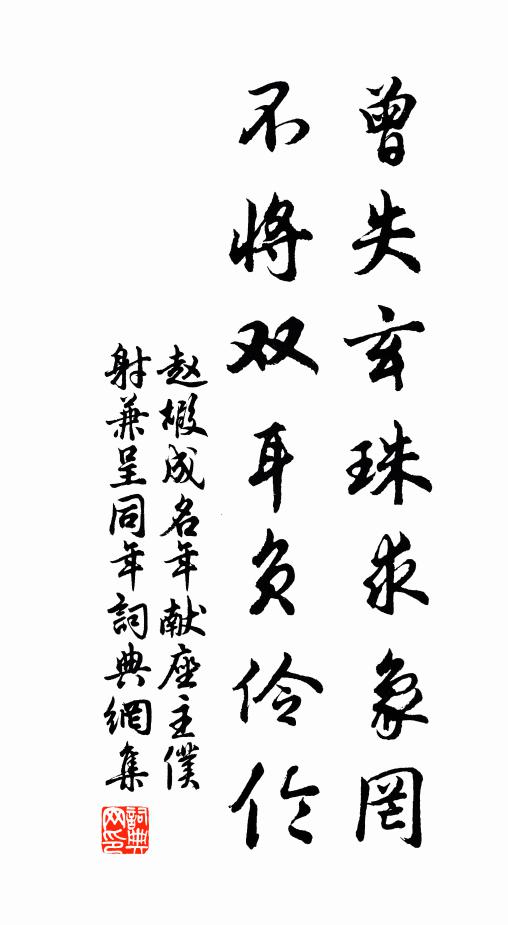 曾失玄珠求象罔
不将双耳负伶伦
赵嘏成名年献座主仆
射兼呈同年詞典網集
詞典网印